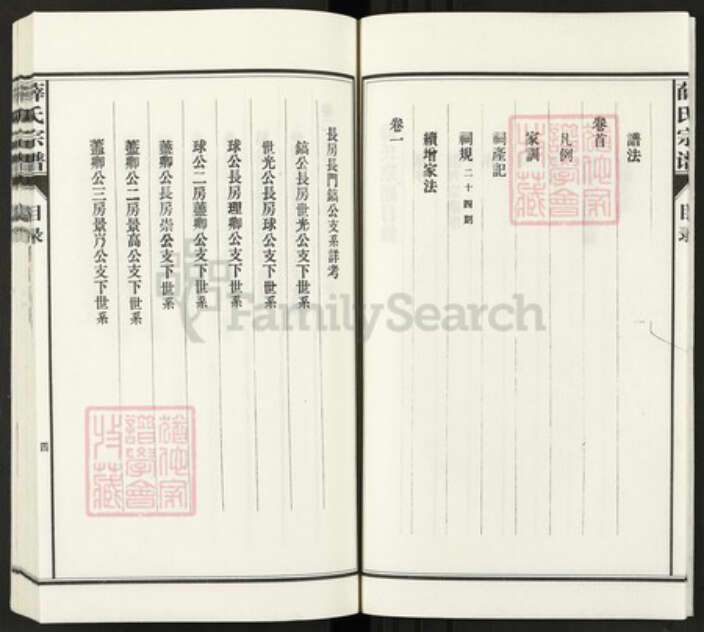 譜法
卷首
凡例
家訓
祠產記
祠規 二十四則
續增家法
卷一
長房長門鎬公支系詳考
鎬公長房世光公支下世系
世光公長房球公支下世系
球公長房理卿公支下世系
球公二房藎卿公支下世系
藎卿公長房崇公支下世系
藎卿公二房景高公支下世系
藎卿公三房景乃公支下世系
薛氏宗譜
目录
四
薛氏宗譜
目录
FamilySearch